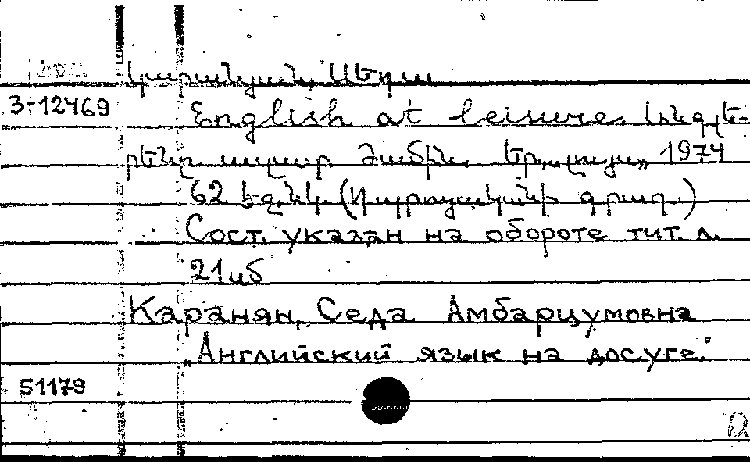 Կարանյան, Սեդա
3-12469
English at leisure. Անգլե-
րենը ազատ ժամին. Եր., Լույս, 1974
62 էջ, նկ. (Դպրոցականի գրադ.)
Сост. указан на обороте тит. л.
21 иб
Каранян, Седа Амбарцумовна
„Английский язык на досуге."
51179